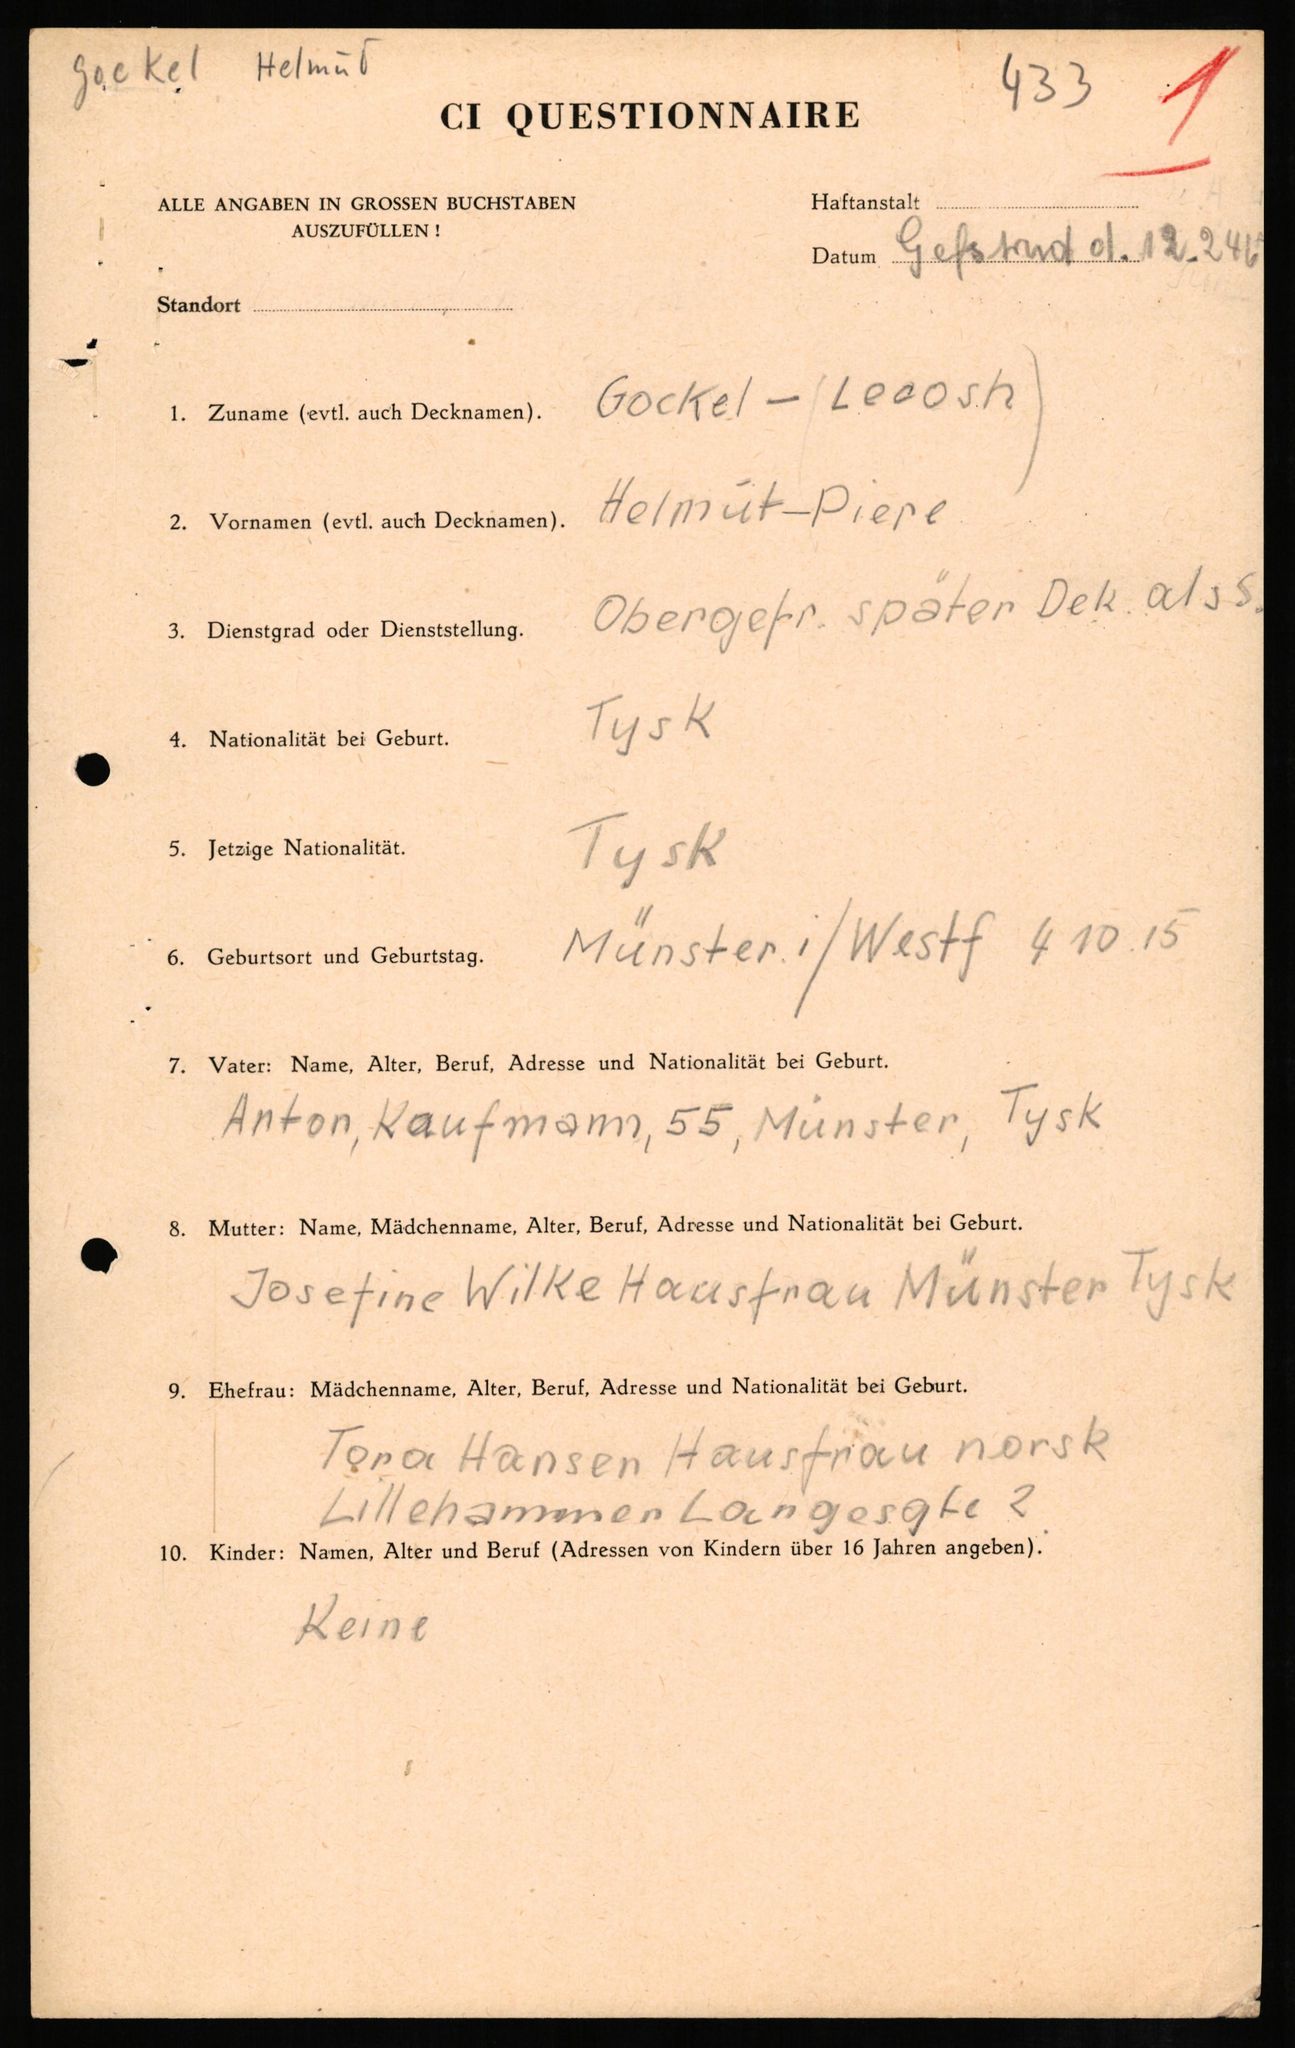 Gockel Helmut
433
1
CI QUESTIONNAIRE
ALLE ANGABEN IN GROSSEN BUCHSTABEN
AUSZUFÜLLEN!
Haftanstalt
Datum d. 12.2 46
Standort
1. Zuname (evtl. auch Decknamen). Gockel – (Lecosh)
2. Vornamen (evtl. auch Decknamen). Helmut–Piere
3. Dienstgrad oder Dienststellung. Obergefr. später Dek. als S.
4. Nationalität bei Geburt. Tysk
5. Jetzige Nationalität. Tysk
6. Geburtsort und Geburtstag. Münster. i/Westf 4 10.15
7. Vater: Name, Alter, Beruf, Adresse und Nationalität bei Geburt.
Anton, Kaufmann, 55, Münster, Tysk
8. Mutter: Name, Mädchenname, Alter, Beruf, Adresse und Nationalität bei Geburt.
Josefine Wilke Hausfrau Münster Tysk
9. Ehefrau: Mädchenname, Alter, Beruf, Adresse und Nationalität bei Geburt.
Tora Hansen Hausfrau norsk
Lillehammer Langesgte 2
10. Kinder: Namen, Alter und Beruf (Adressen von Kindern über 16 Jahren angeben).
Keine